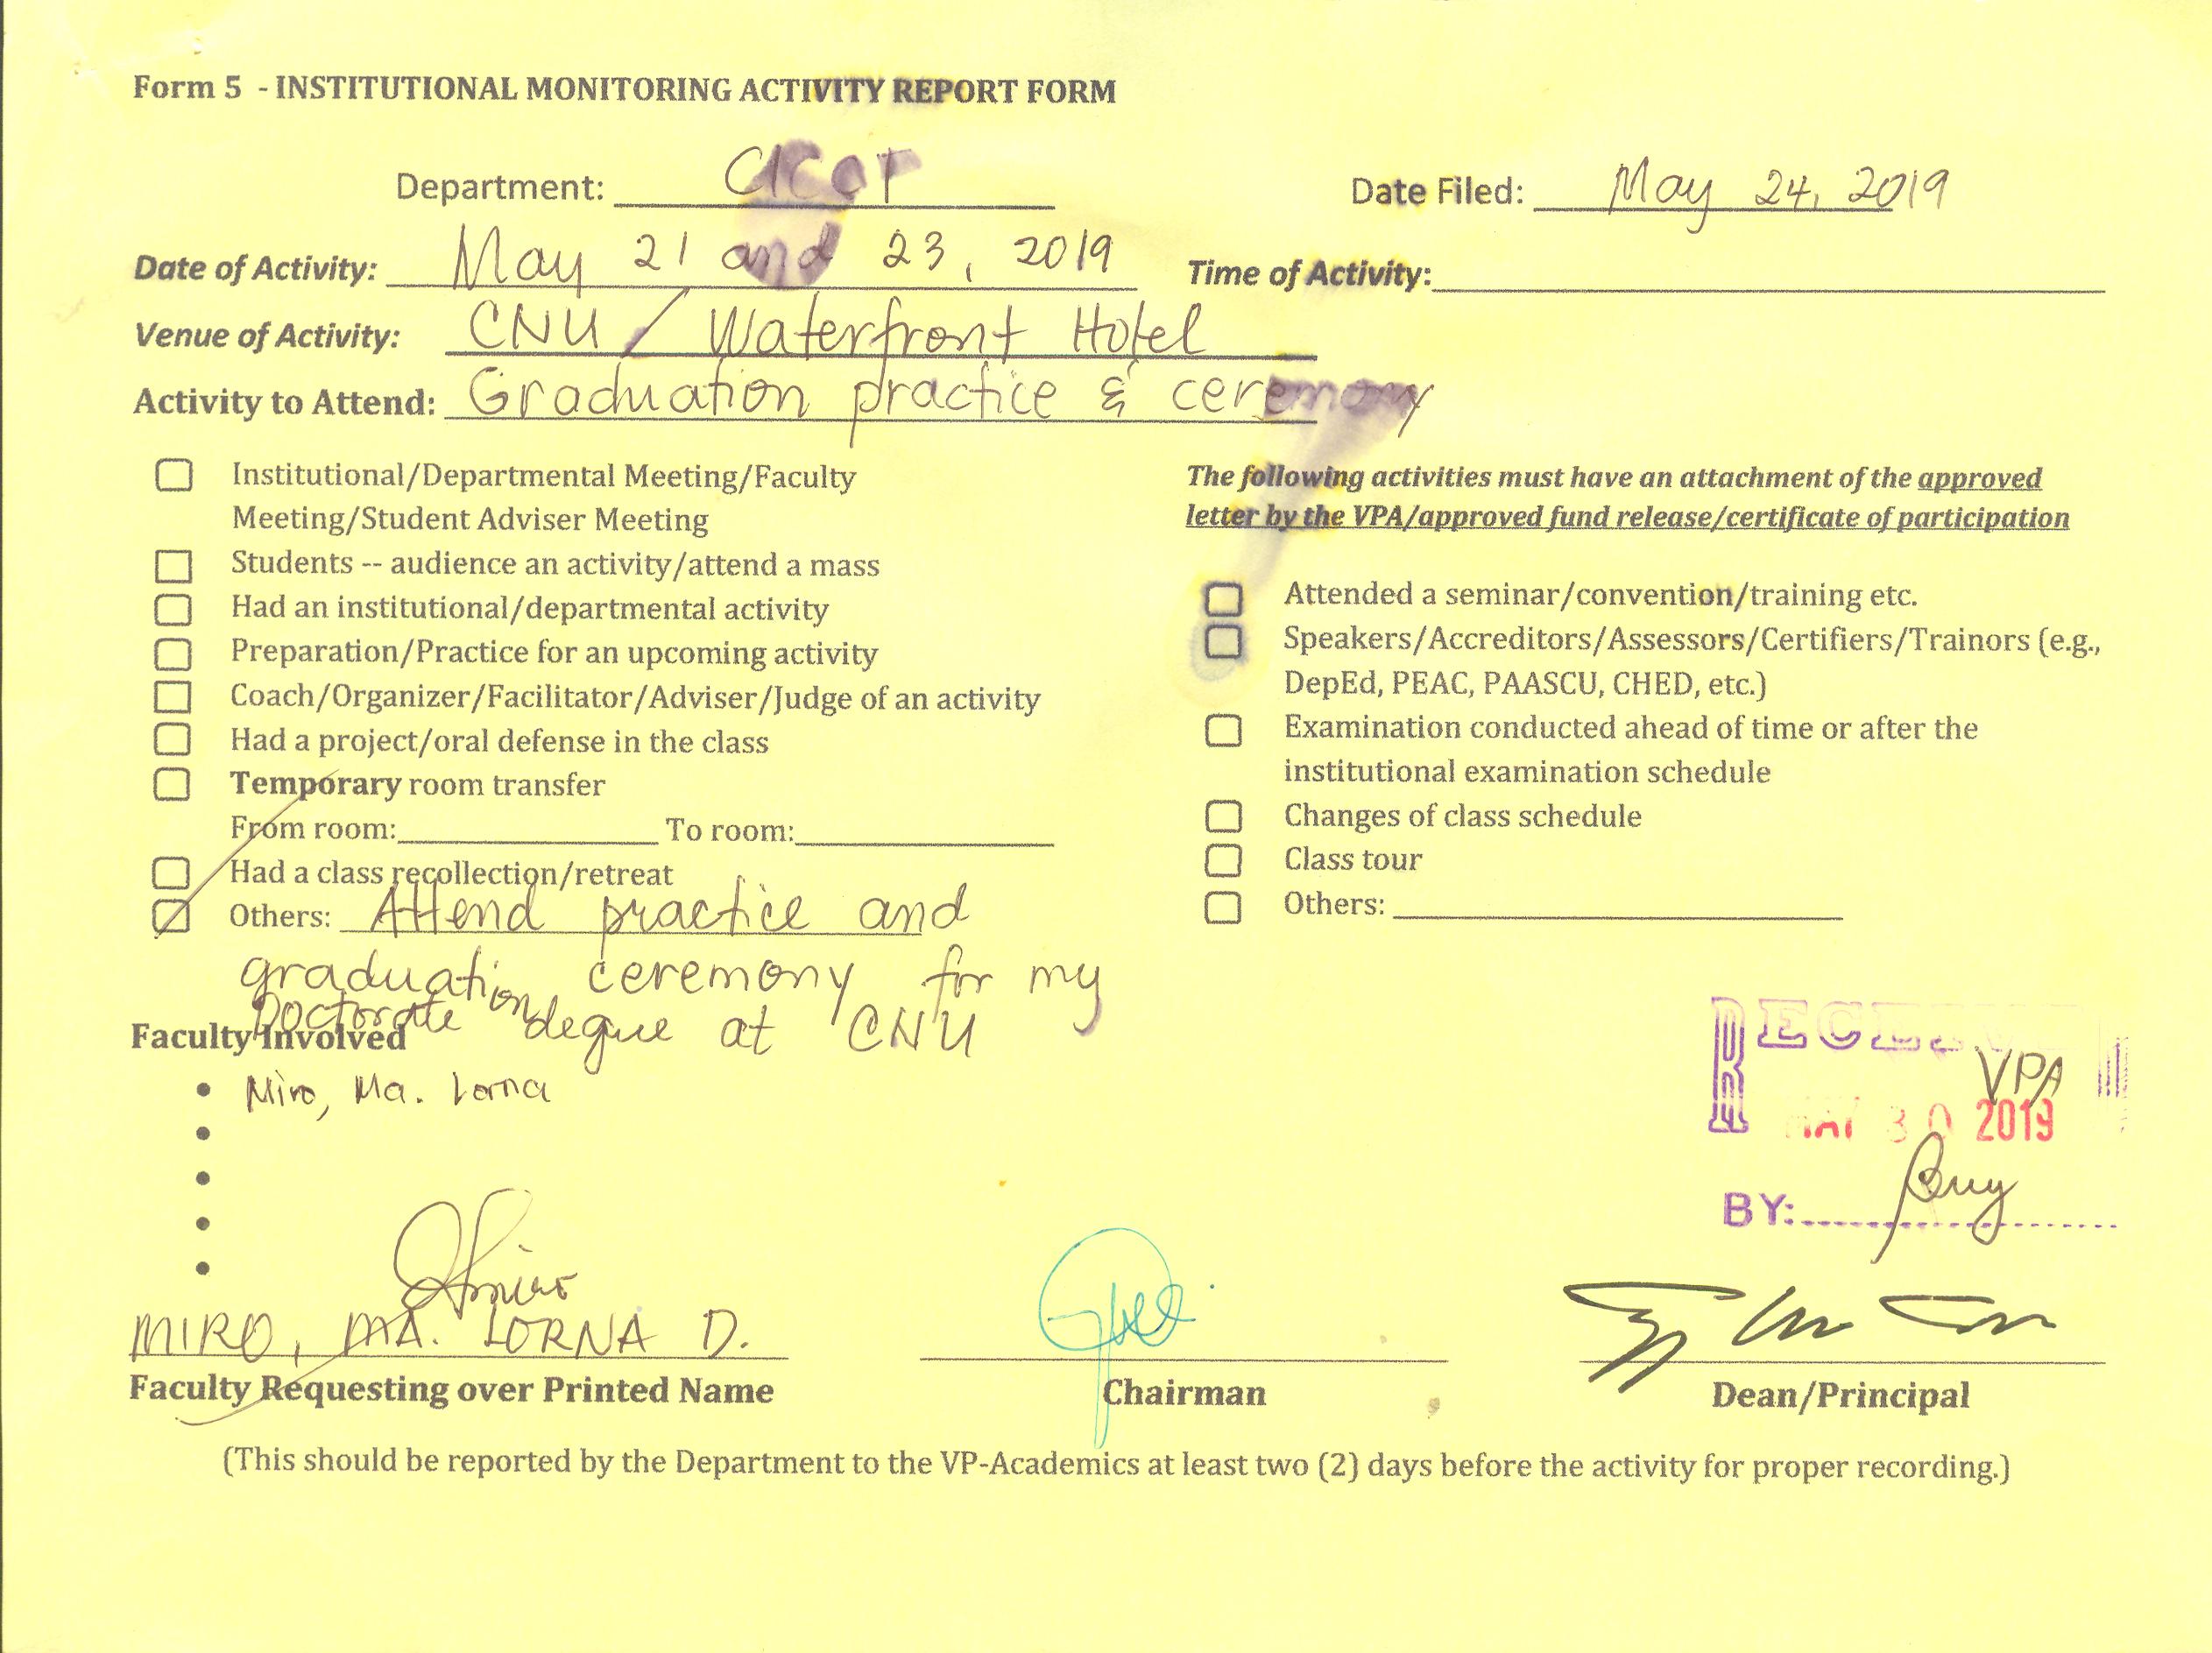 Form 5 - INSTITUTIONAL MONITORING ACTIVITY REPORT FORM
Department: CICCT Date Filed: May 24, 2019
Date of Activity: May 21 and 23, 2019 Time of Activity:
Venue of Activity: CNU / Waterfront Hotel
Activity to Attend: Graduation practice & ceremony
Institutional/Departmental Meeting/Faculty
Meeting/Student Adviser Meeting
Students -- audience an activity/attend a mass
Had an institutional/departmental activity
Preparation/Practice for an upcoming activity
Coach/Organizer/Facilitator/Adviser/Judge of an activity
Had a project/oral defense in the class
Temporary room transfer
From room: To room:
Had a class recollection/retreat
Others: Attend practice and
graduation ceremony for my
Doctorate degree at CNU
The following activities must have an attachment of the approved
letter by the VPA/approved fund release/certificate of participation
Attended a seminar/convention/training etc.
Speakers/Accreditors/Assessors/Certifiers/Trainors (e.g.,
DepEd, PEAC, PAASCU, CHED, etc.)
Examination conducted ahead of time or after the
institutional examination schedule
Changes of class schedule
Class tour
Others:
Faculty Involved
• Miro, Ma. Lorna
RECEIVED
VPA
MAY 30 2019
BY:
MIRO, MA. LORNA D.
Faculty Requesting over Printed Name Chairman Dean/Principal
(This should be reported by the Department to the VP-Academics at least two (2) days before the activity for proper recording.)